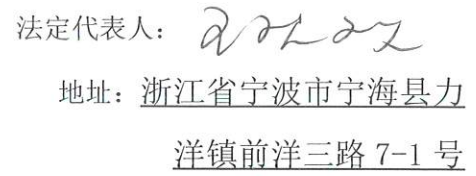 法定代表人：
地址：浙江省宁波市宁海县力
洋镇前洋三路 7-1 号